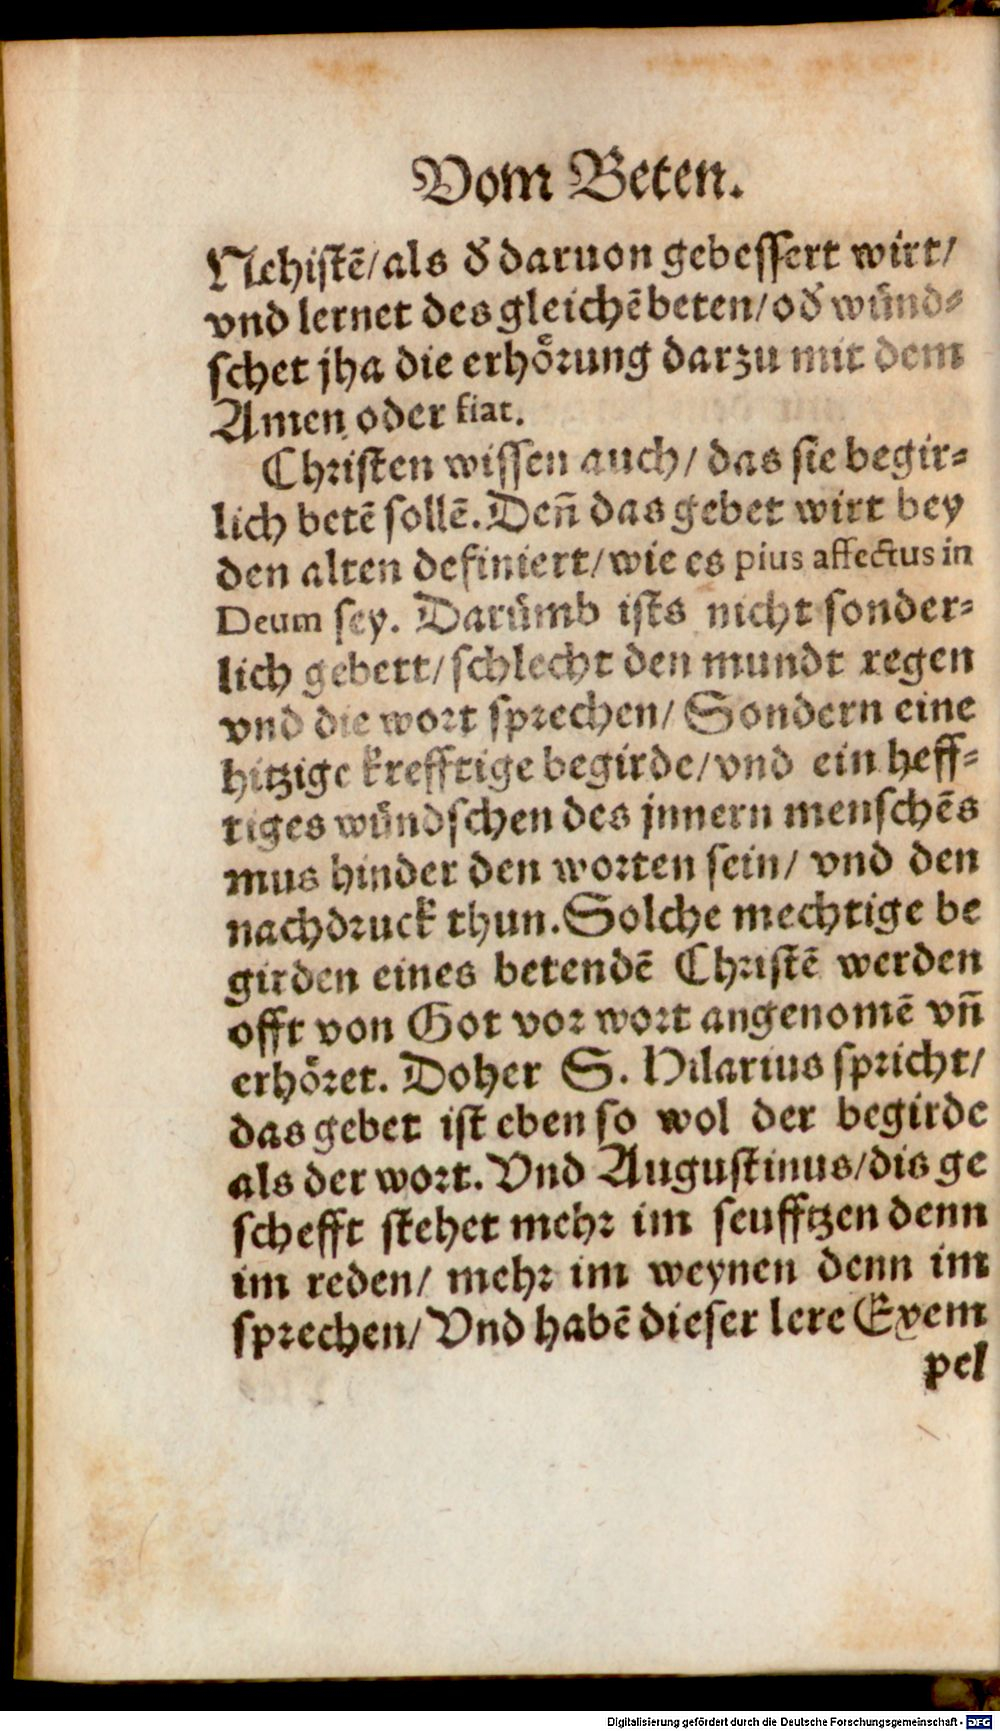 Vom Beten.
Nehistẽ/als d̃ daruon gebessert wirt/
vnd lernet des gleichẽ beten/od̃ wünd-
schet jha die erhörung darzu mit dem
Amen oder fiat.
Christen wissen auch/ das sie begir-
lich betẽ sollẽ. Deñ das gebet wirt bey
den alten definiert/wie es pius affectus in
Deum sey. Darümb ists nicht sonder-
lich gebett/schlecht den mundt regen
vnd die wort sprechen/ Sondern eine
hitzige krefftige begirde/vnd ein heff-
tiges wündschen des jnnern menschẽs
mus hinder den worten sein/ vnd den
nachdruck thun. Solche mechtige be
girden eines betendẽ Christẽ werden
offt von Got vor wort angenomẽ vñ
erhöret. Doher S. Hilarius spricht/
das gebet ist eben so wol der begirde
als der wort. Vnd Augustinus/dis ge
schefft stehet mehr im seufftzen denn
im reden/ mehr im weynen denn im
sprechen/ Vnd habẽ dieser lere Exem
pel
Digitalisierung gefördert durch die Deutsche Forschungsgemeinschaft - DFG